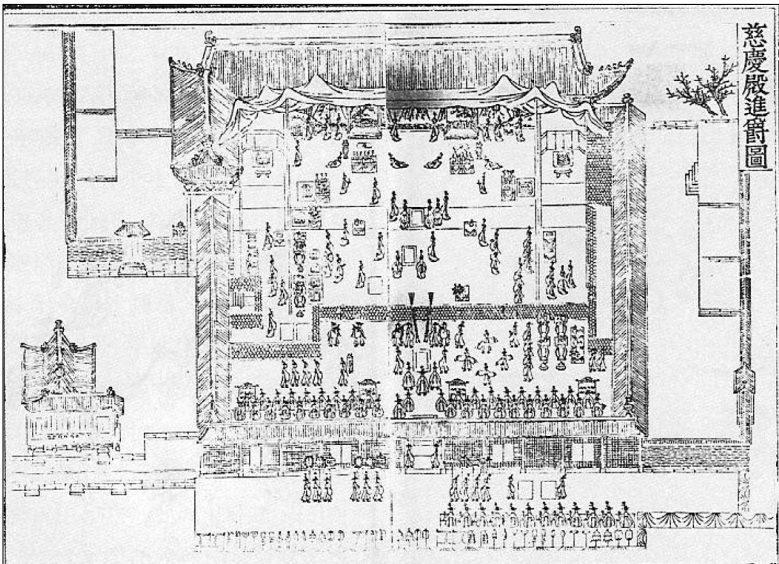 慈慶殿進爵圖